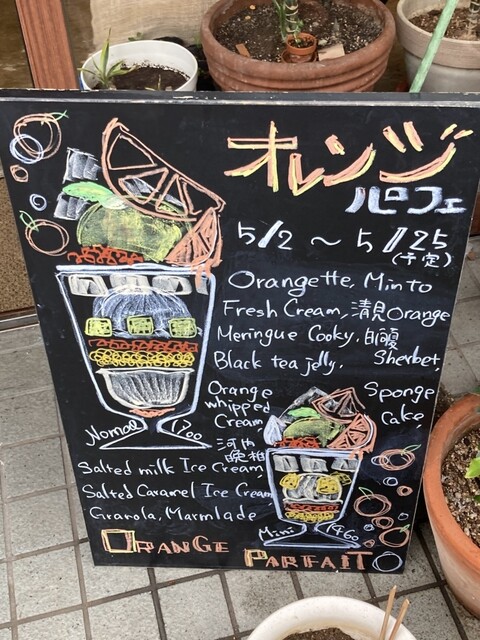 オレンジ
パフェ
5/2 〜 5/25
(予定)
Orangette, Minto
Fresh Cream, 清見 Orange
Meringue Cooky,
Black tea jelly, Sherbet,
Orange whipped Cream
Sponge Cake,
河内晩柑
Salted milk Ice Cream,
Salted Caramel Ice Cream
Granola, Marmlade
Nomal 1700
Mini 1460
ORANGE PARFAIT